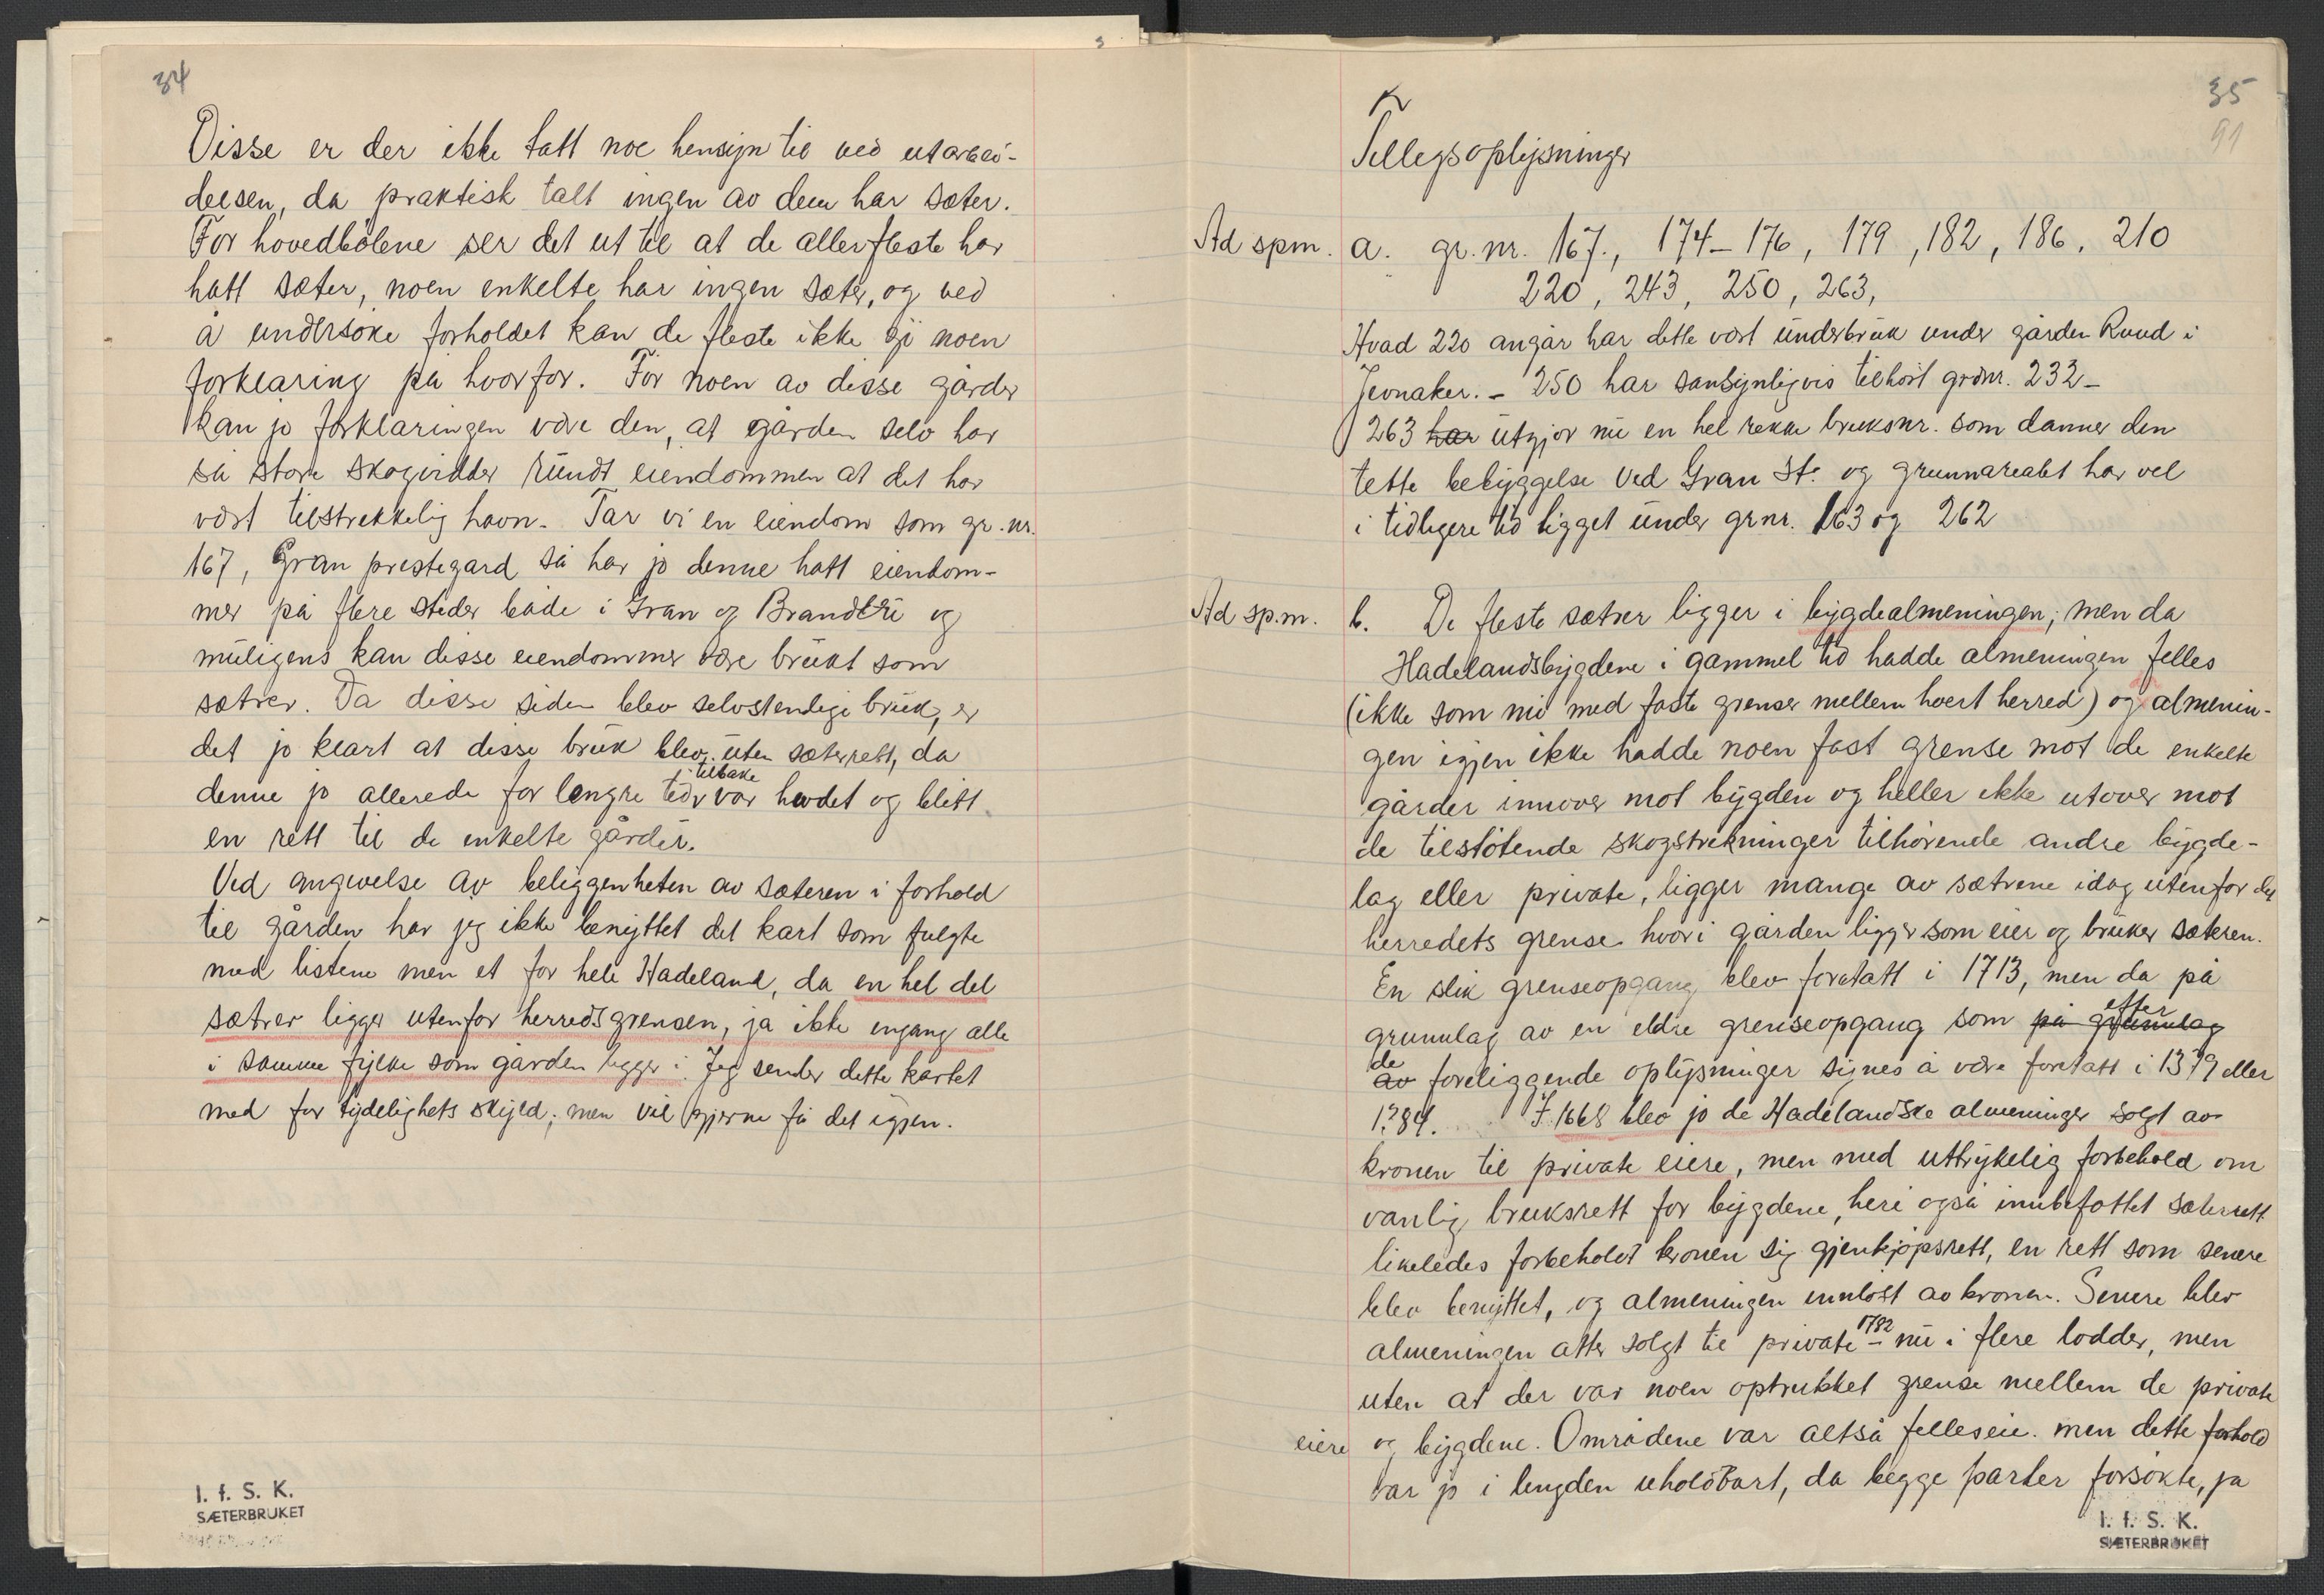 34
Disse er der ikke tatt noe hensyn til ved utarbei-
delsen, da praktisk talt ingen av dem har sæter.
For hovedbølene ser det ut til at de aller fleste har
hatt sæter, noen enkelte har ingen sæter, og ved
å undersøke forholdet kan de fleste ikke gi noen
forklaring på hvorfor. For noen av disse gårder
kan jo forklaringen være den, at gården selv har
så store skogvidder rundt eiendommen at det har
vært tilstrekkelig havn. Tar vi en eiendom som gr.nr.
167, Gran prestegard så har jo denne hatt eiendom-
mer på flere steder både i Gran og Brandbu og
muligens kan disse eiendommer være brukt som
sætrer. Da disse siden blev selvstendige bruk, er
det jo klart at disse bruk blev uten sæterrett, da
denne jo allerede for lengre tid tilbake var hevdet og blitt
en rett til de enkelte gårder.
Ved angivelse av beliggenheten av sæteren i forhold
til gården har jeg ikke benyttet det kart som fulgte
med listene men et for hele Hadeland, da en hel del
sætrer ligger utenfor herredsgrensen, ja ikke engang alle
i samme fylke som gården ligger i. Jeg sender dette kartet
med for tydelighets skyld; men vil gjerne få det igjen.
I. f. S. K.
SÆTERBRUKET
35
91
Tilleggsoplysninger
Ad spm. a. gr. nr. 167., 174-176, 179, 182, 186, 210
220, 243, 250, 263,
Hvad 220 angår har dette vært underbruk under gården Ruud i
Jevnaker. - 250 har sansynligvis tilhørt grdnr. 232-
263 har utgjør nu en hel rekke bruksnr. som danner den
tette bebyggelse ved Gran St. og grunnarealet har vel
i tidligere tid ligget under grnr. 163 og 262
Ad sp.m. b. De fleste sætrer ligger i bygdealmeningen; men da
Hadelandsbygdene i gammel tid hadde almeningen felles
(ikke som nu med faste grenser mellem hvert herred) og almenin-
gen igjen ikke hadde noen fast grense mot de enkelte
gårder innover mot bygden og heller ikke utover mot
de tilstøtende skogstrekninger tilhørende andre bygde-
lag eller private, ligger mange av sætrene idag utenfor det
herredets grense hvori gården ligger som eier og bruker sæteren.
En slik grenseopgang blev foretatt i 1713, men da på
grunnlag av en eldre grenseopgang som på grunnlag efter
av de foreliggende oplysninger synes å være foretatt i 1379 eller
1384. I 1668 blev jo de Hadelandske almeninger solgt av
kronen til private eiere, men med uttrykelig forbehold om
vanlig bruksrett for bygdene, heri også innbefattet sæterrett
likeledes forbeholdt kronen sig gjenkjøpsrett, en rett som senere
blev benyttet, og almeningen innløst av kronen. Senere blev
almeningen atter solgt til private - 1782 nu i flere lodder, men
uten at der var noen optrukket grense mellem de private
eiere og bygdene. Områdene var altså felleseie. men dette forhold
var jo i lengden uholdbart, da begge parter forsøkte, ja
I. f. S. K.
SÆTERBRUKET